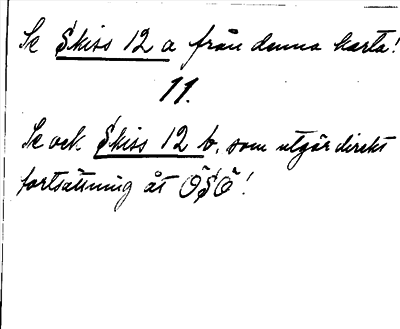 Se Skiss 12 a från denna karta!
11.
Se ock. Skiss 12 b, som utgör direkt
fortsättning åt ÖSÖ!